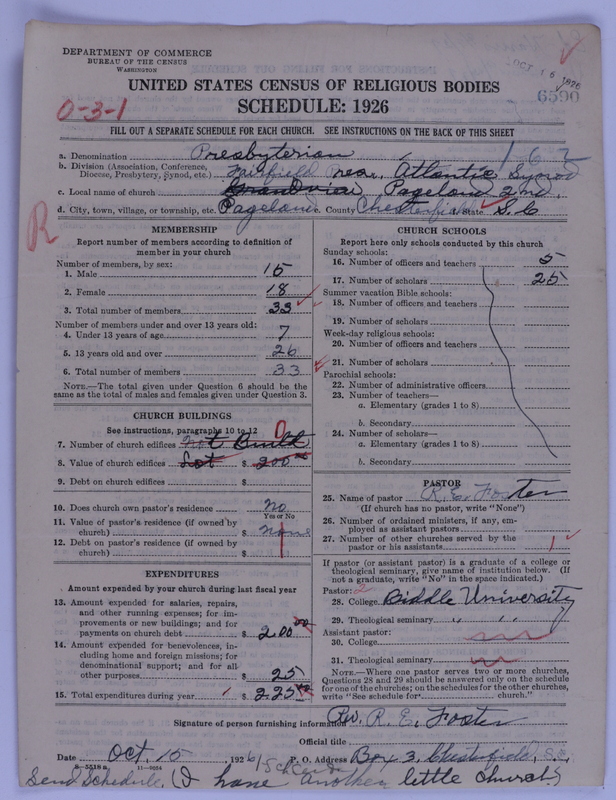 DEPARTMENT OF COMMERCE
BUREAU OF THE CENSUS
WASHINGTON
OCT 16 1926
6590
UNITED STATES CENSUS OF RELIGIOUS BODIES
SCHEDULE: 1926
0-3-1
FILL OUT A SEPARATE SCHEDULE FOR EACH CHURCH. SEE INSTRUCTIONS ON THE BACK OF THIS SHEET
a. Denomination Presbyterian 162
b. Division (Association, Conference, Diocese, Presbytery, Synod, etc.) Fairfield Pres. Atlantic Synod
c. Local name of church Grandview Pageland 2nd.
d. City, town, village, or township, etc. Pageland County Chesterfield State S.C
R
MEMBERSHIP
Report number of members according to definition of
member in your church
Number of members, by sex:
1. Male 15
2. Female 18
3. Total number of members 33
Number of members under and over 13 years old:
4. Under 13 years of age 7
5. 13 years old and over 26
6. Total number of members 33
NOTE.—The total given under Question 6 should be
same as the total of males and females given under Question 3.
CHURCH BUILDINGS
See instructions, paragraphs 10 to 12
7. Number of church edifices not Build 0
8. Value of church edifices Lot $ 200
9. Debt on church edifices $
10. Does church own pastor's residence no
Yes or No
11. Value of pastor's residence (if owned by
church) $ none
12. Debt on pastor's residence (if owned by
church) $
EXPENDITURES
Amount expended by your church during last fiscal year
13. Amount expended for salaries, repairs,
and other running expenses; for im-
provements or new buildings; and for
payments on church debt $ 200 00
14. Amount expended for benevolences, in-
cluding home and foreign missions; for
denominational support; and for all
other purposes $ 25
15. Total expenditures during year $ 225
CHURCH SCHOOLS
Report here only schools conducted by this church
Sunday schools:
16. Number of officers and teachers 5
17. Number of scholars 25
Summer vacation Bible schools:
18. Number of officers and teachers
19. Number of scholars
Week-day religious schools:
20. Number of officers and teachers
21. Number of scholars
Parochial schools:
22. Number of administrative officers
23. Number of teachers—
a. Elementary (grades 1 to 8)
b. Secondary
24. Number of scholars—
a. Elementary (grades 1 to 8)
b. Secondary
PASTOR
25. Name of pastor R. E. Foster
(If church has no pastor, write "None")
26. Number of ordained ministers, if any, em-
ployed as assistant pastors
27. Number of other churches served by the
pastor or his assistants 1
If pastor (or assistant pastor) is a graduate of a college or
theological seminary, give name of institution below. (If
not a graduate, write "No" in the space indicated.)
Pastor: 2
28. College Biddle University
29. Theological seminary " "
Assistant pastor:
30. College
31. Theological seminary
NOTE.—Where one pastor serves two or more churches,
Questions 28 and 29 should be answered only on the schedule
for one of the churches; on the schedules for the other churches,
write "See schedule for church."
Signature of person furnishing information Rev. R. E. Foster
Official title
Date Oct. 15, 1926 P. O. Address Box 3, Chesterfield, S.C.
8—5518 a 11—9084
Send Schedule. (I have another little church)